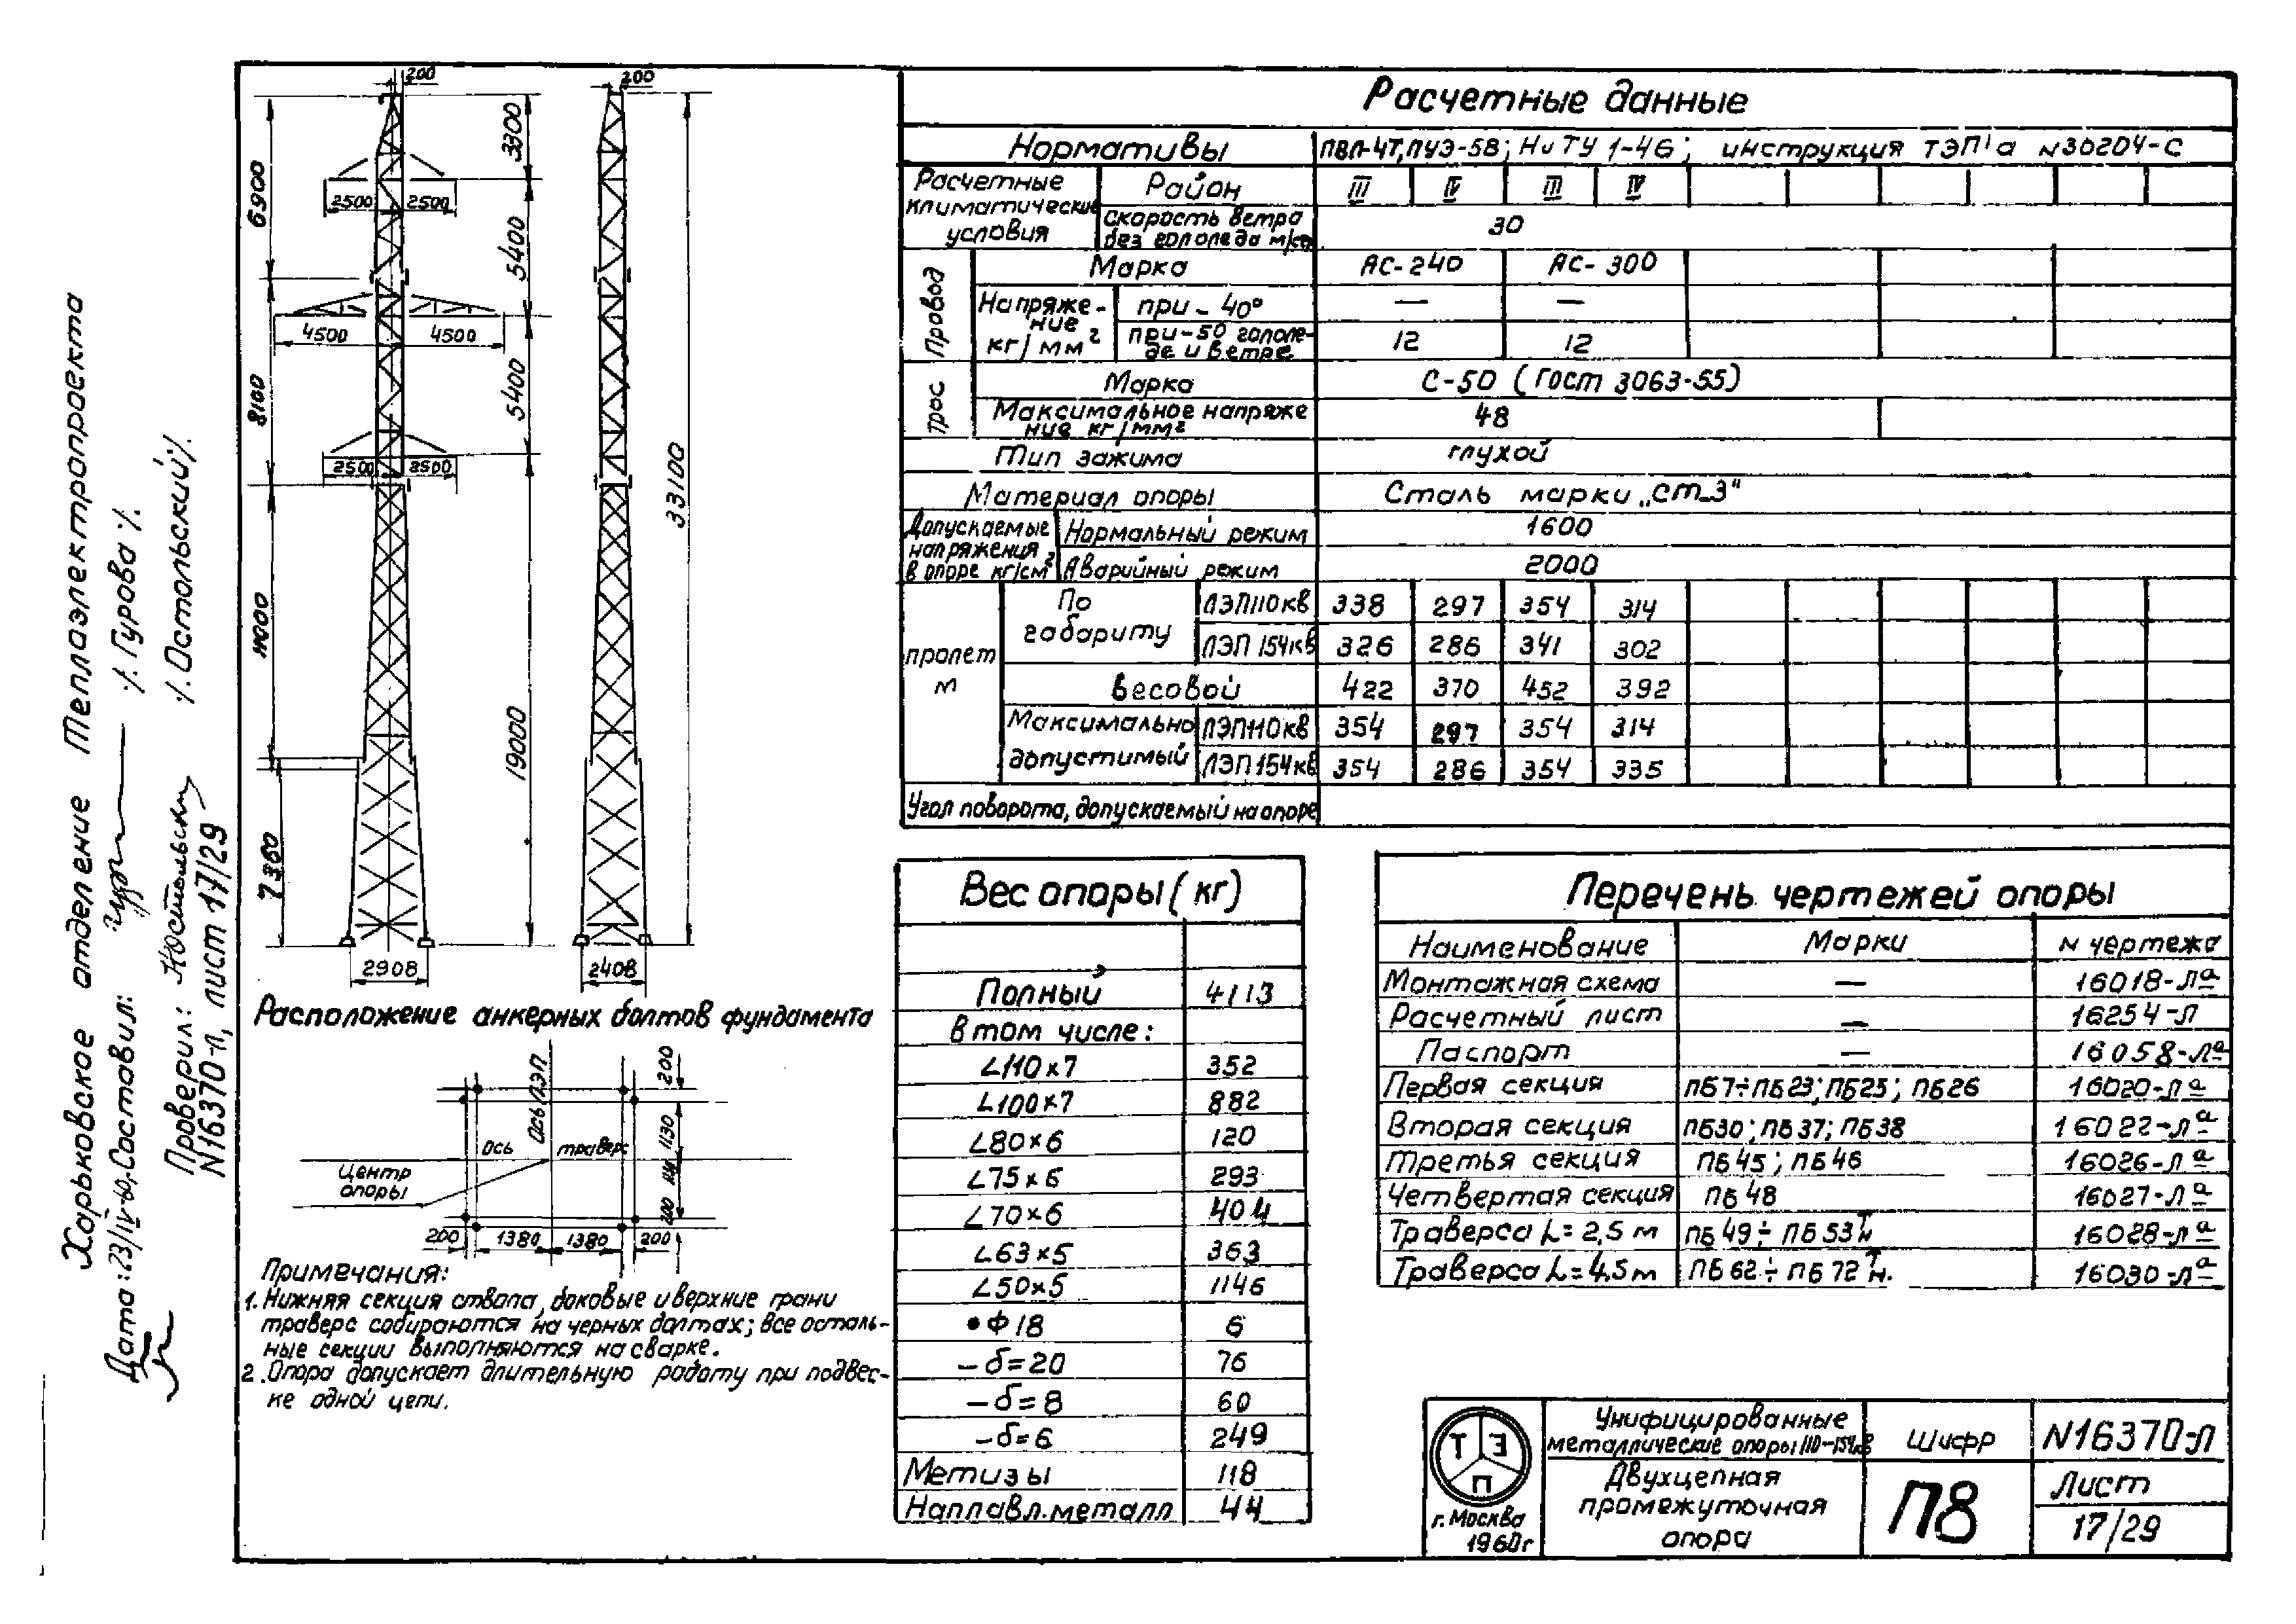 Харьковское отделение Теплоэлектропроекта
Дата: 23/IV-60г. Составил: /. Гурова /.
Проверил: /. Остольский /.
N16370-л, лист 17/29
200
200
6900
8100
11000
7360
3300
5400
5400
19000
33100
2500 2500
4500 4500
2500 2500
2908
2408
Расположение анкерных болтов фундамента
Ось ЛЭП
Ось траверс
Центр
опоры
200
1130
200
200 1380 1380 200
Примечания:
1. Нижняя секция ствола, боковые и верхние грани
траверс собираются на черных болтах; все осталь-
ные секции выполняются на сварке.
2. Опора допускает длительную работу при подвес-
ке одной цепи.
Расчетные данные
Нормативы ПВЛ-47, ПУЭ-58; НиТУ 1-46; инструкция ТЭП'а N30204-С
Расчетные климатические условия
Район III IV III IV
скорость ветра без гололеда м/сек 30
Провод
Марка АС-240 АС-300
Напряжение кг/мм²
при - 40° — —
при -5° гололеде и ветре 12 12
Трос
Марка С-50 (Гост 3063-55)
Максимальное напряжение кг/мм² 48
Тип зажима глухой
Материал опоры Сталь марки „ст_3"
Допускаемые напряжения в опоре кг/см²
Нормальный режим 1600
Аварийный режим 2000
пролет м
По габариту
ЛЭП110кв 338 297 354 314
ЛЭП 154кв 326 286 341 302
весовой 422 370 452 392
Максимально допустимый
ЛЭП110кв 354 297 354 314
ЛЭП154кв 354 286 354 335
Угол поворота, допускаемый на опоре
Вес опоры (кг)
Полный 4113
В том числе:
∠110×7 352
∠100×7 882
∠80×6 120
∠75×6 293
∠70×6 404
∠63×5 363
∠50×5 1146
•Ф18 6
–δ=20 76
–δ=8 60
–δ=6 249
Метизы 118
Наплавл.металл 44
Перечень чертежей опоры
Наименование Марки N чертежа
Монтажная схема — 16018-Ла
Расчетный лист — 16254-Л
Паспорт — 16058-Ла
Первая секция ПБ7÷ПБ23; ПБ25; ПБ26 16020-Ла
Вторая секция ПБ30; ПБ37; ПБ38 16022-Ла
Третья секция ПБ45; ПБ46 16026-Ла
Четвертая секция ПБ48 16027-Ла
Траверса L=2,5м ПБ49÷ПБ53 т/н 16028-Ла
Траверса L=4,5м ПБ62÷ПБ72 т/н. 16030-Ла
ТЭП
г. Москва
1960г
Унифицированные
металлические опоры 110-154кв
Двухцепная
промежуточная
опора
Шифр
П8
N16370-Л
Лист
17/29